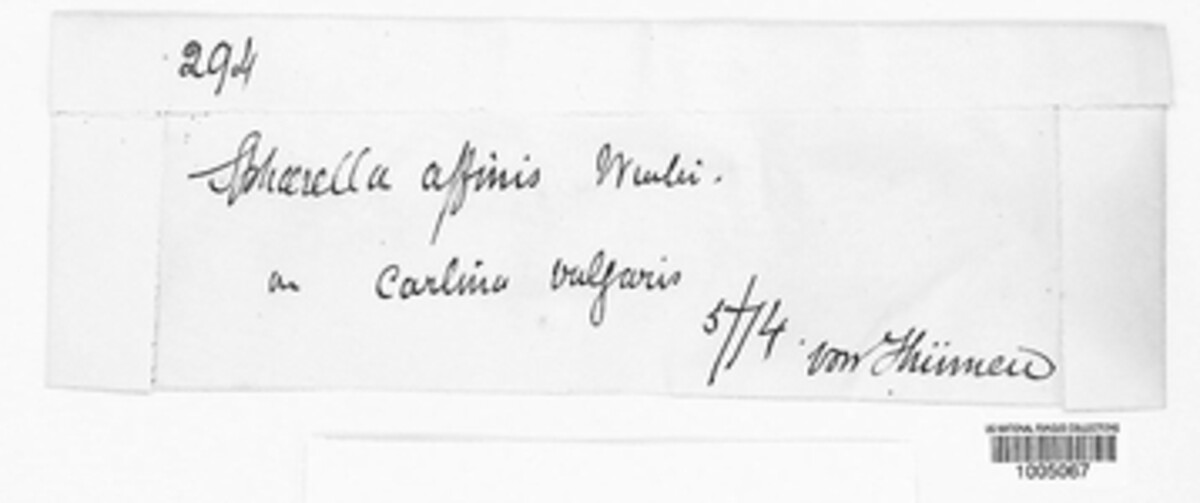 294
Sphaerella affinis Winter.
an Carlina vulgaris
5/74. von Thümen
US NATIONAL FUNGUS COLLECTIONS
1005067